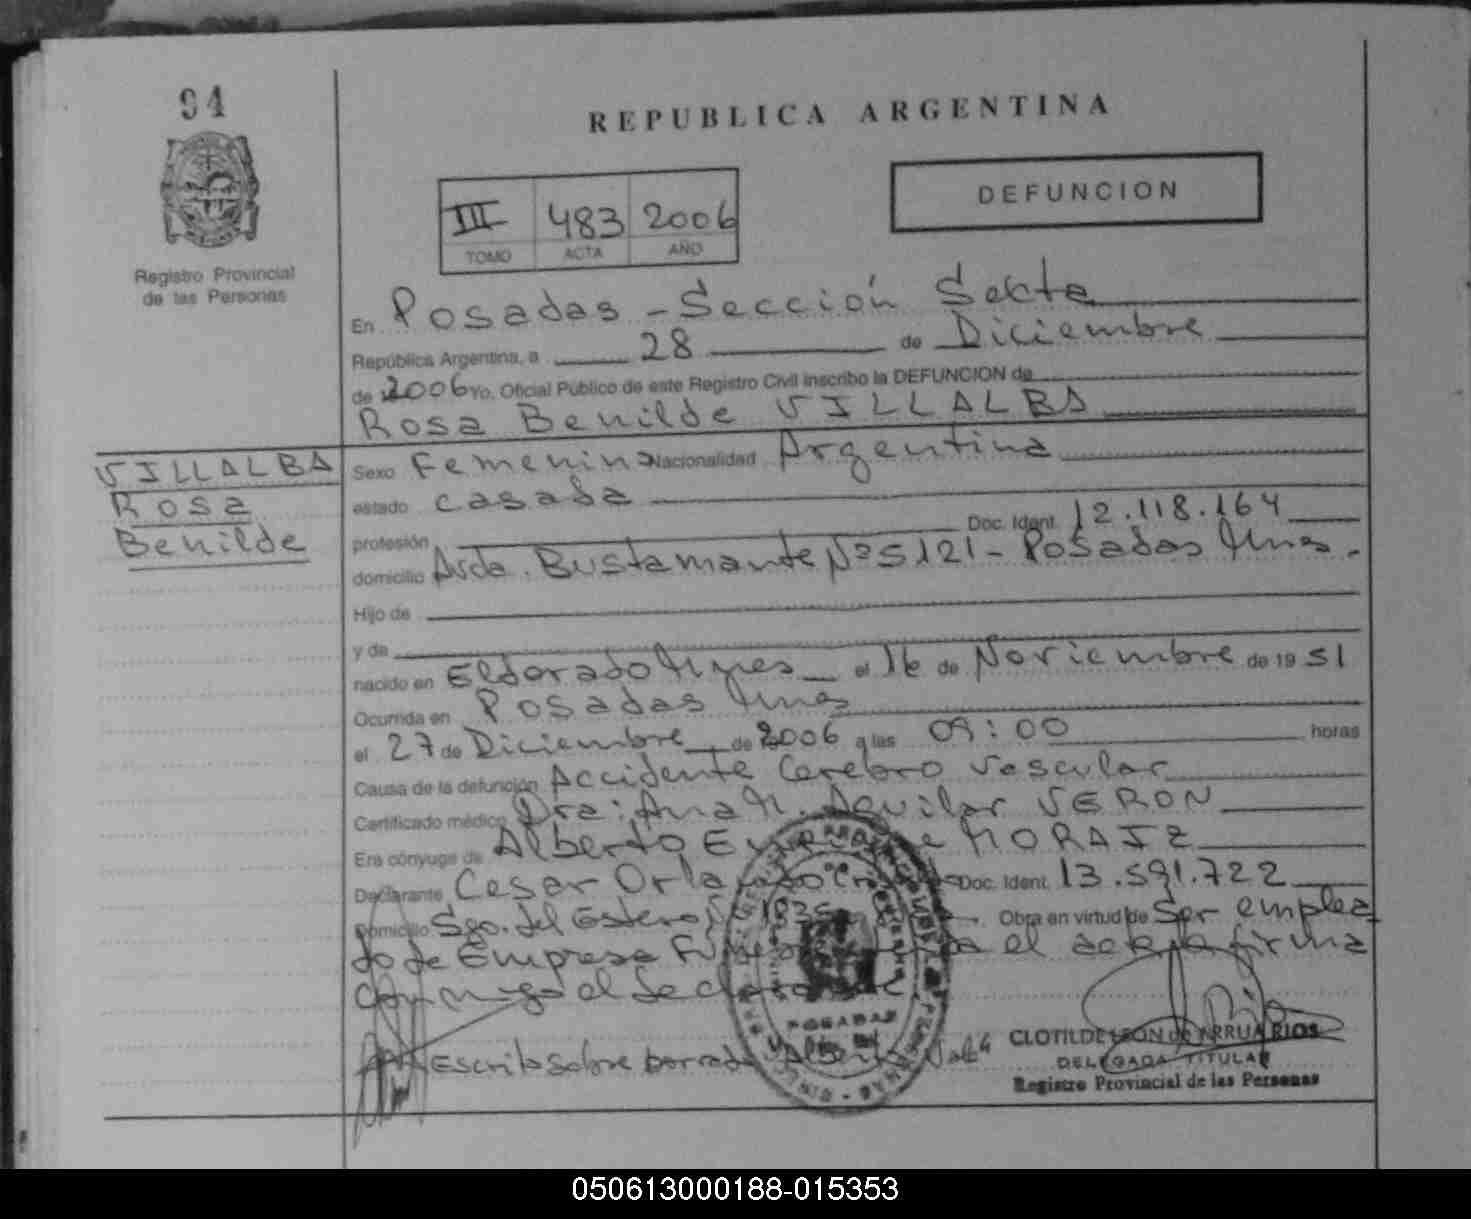 94
REPUBLICA ARGENTINA
DEFUNCION
III 483 2006
TOMO ACTA AÑO
Registro Provincial
de las Personas
En Posadas - Sección Sexta
República Argentina, a 28 de Diciembre
de 2006 Yo, Oficial Público de este Registro Civil inscribo la DEFUNCION de
Rosa Benilde VILLALBA
VILLALBA
Rosa
Benilde
Sexo Femenino Nacionalidad Argentina
estado casada
profesión Doc. Ident. 12.118.164
domicilio Avda. Bustamante Nº 5121 - Posadas Mnes.
Hijo de
y de
nacido en Eldorado Mnes el 16 de Noviembre de 19 51
Ocurrida en Posadas Mnes
el 27 de Diciembre de 2006 a las 09:00 horas
Causa de la defunción Accidente Cerebro Vascular
Certificado médico Dra: Ana M. Aguilar VERON
Era cónyuge de Alberto MORAIZ
Declarante Cesar Doc. Ident. 13.591.722
Domicilio Sgo. del Estero 1835 Obra en virtud de Ser emplea
do de Empresa el acta firma
conmigo el
Escrito sobre Vale
POSADAS
CLOTILDE LEON de ARRUA RIOS
DELEGADA TITULAR
Registro Provincial de las Personas
050613000188-015353